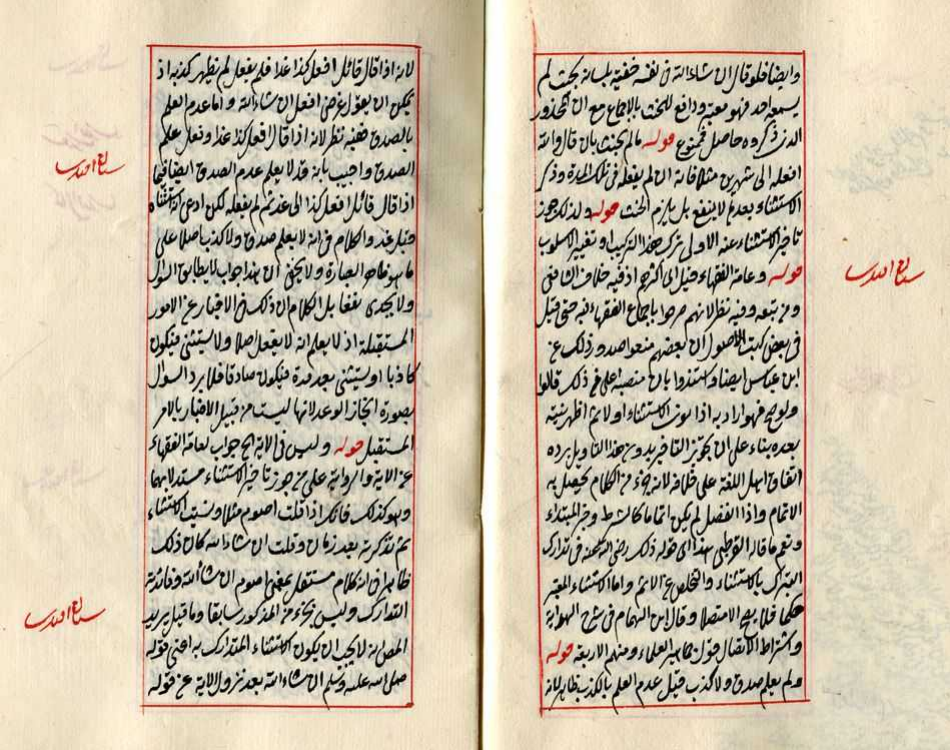 وايضا فلو قال ان شاء الله في نفسه خفية بلسانه بحيث لم
يسمعه احد فهو معتبر ودافع للحنث بالاجماع مع ان المحذور
الذي ذكروه حاصل فممنوع قوله مالم يحنث بان قال والله
افعله الى شهرين مثلا فانه ان لم يفعله في تلك المدة وذكر
الاستثناء بعدها لا ينفع بل يلزم الحنث قوله ولذلك جوز
تاخير الاستثناء عنه الاولى ترك هذا التركيب او تغيير الاسلوب
قوله وعامة الفقهاء قيل اى اكثرهم اذ فيه خلاف الشافعى
ومن تبعه وفيه نظر لانهم صرحوا باجماع الفقهاء فيه حتى قيل
فى بعض كتب الاصول ان بعضهم منعوا صدور ذلك عن
ابن عباس ايضا واستدلوا بان منصبه اعلى من ذكر قالوا
ولو صح فهو اراد به اذا نوى الاستثناء اولا ثم اظهر نيته
بعده بناء على ان تجويز التاخير بدون هذا التاويل يرده
اتفاق اهل اللغة على خلافه لانه جزء من الكلام يحصل به
الاتمام واذا انفصل لم يكن اتماما كالشرط وخبر المبتداء
ونعم ما قاله القرطبى هذا اى قوله ذلك رضى الله عنه فى تدارك
التبرك بالاستثناء والتخلص عن الاثم واما الاستثناء المعتبر
حكما فلا يصح الا متصلا وقال ابن الهمام فى شرح الهداية
واشتراط الاتصال قول جماهير العلماء ومنهم الاربعة قوله
ولم يعلم صدق ولا كذب قيل عدم العلم بالكذب ظاهر لانه
سنان افندى
لانه اذا قال قائل افعل كذا غدا فلم يفعل لم يظهر كذبه اذ
يمكن ان يقول غرضى افعل ان شاء الله واما عدم العلم
بالصدق ففيه نظر لانه اذا قال افعل كذا غدا وفعل علم
الصدق واجيب بانه قد لا يعلم عدم الصدق ايضا فيما
اذا قال قائل افعل كذا الى غد ثم لم يفعله لكن ادعى انه استثناه
قبل غد والكلام فى انه لا يعلم صدق ولا كذب اصلا على
ما هو ظاهر العبارة ولا يخفى ان هذا جواب لا يطابق السؤال
ولا يجدى نفعا بل الكلام ان ذلك فى الاخبار عن الامور
المستقبلة اذ لا يعلم انه لا يفعل اصلا ولا يستثنى فيكون
كاذبا او يستثنى بعد مدة فيكون صادقا فلا يرد السؤال
بصورة انجاز الوعد لانها ليست من قبيل الاخبار بالامر
المستقبل قوله وليس فى الاية الخ جواب لعامة الفقهاء
عن الاية والرواية على من جوز تاخير الاستثناء مستدلا بهما
وهو كذلك فانك اذا قلت اصوم مثلا ونسيت الاستثناء
ثم تذكرته بعد زمان وقلت ان شاء الله كان ذلك
ظاهرا فى انه كلام مستقل بمعنى اصوم ان شاء الله وفائدته
التدارك وليس جزء من المذكور سابقا وما قيل يريد
المص انه لا يجب ان يكون الاستثناء المتدارك به اعنى قوله
صلى الله عليه وسلم ان شاء الله بعد نزول الاية عن قوله
سنان افندى
سنان افندى